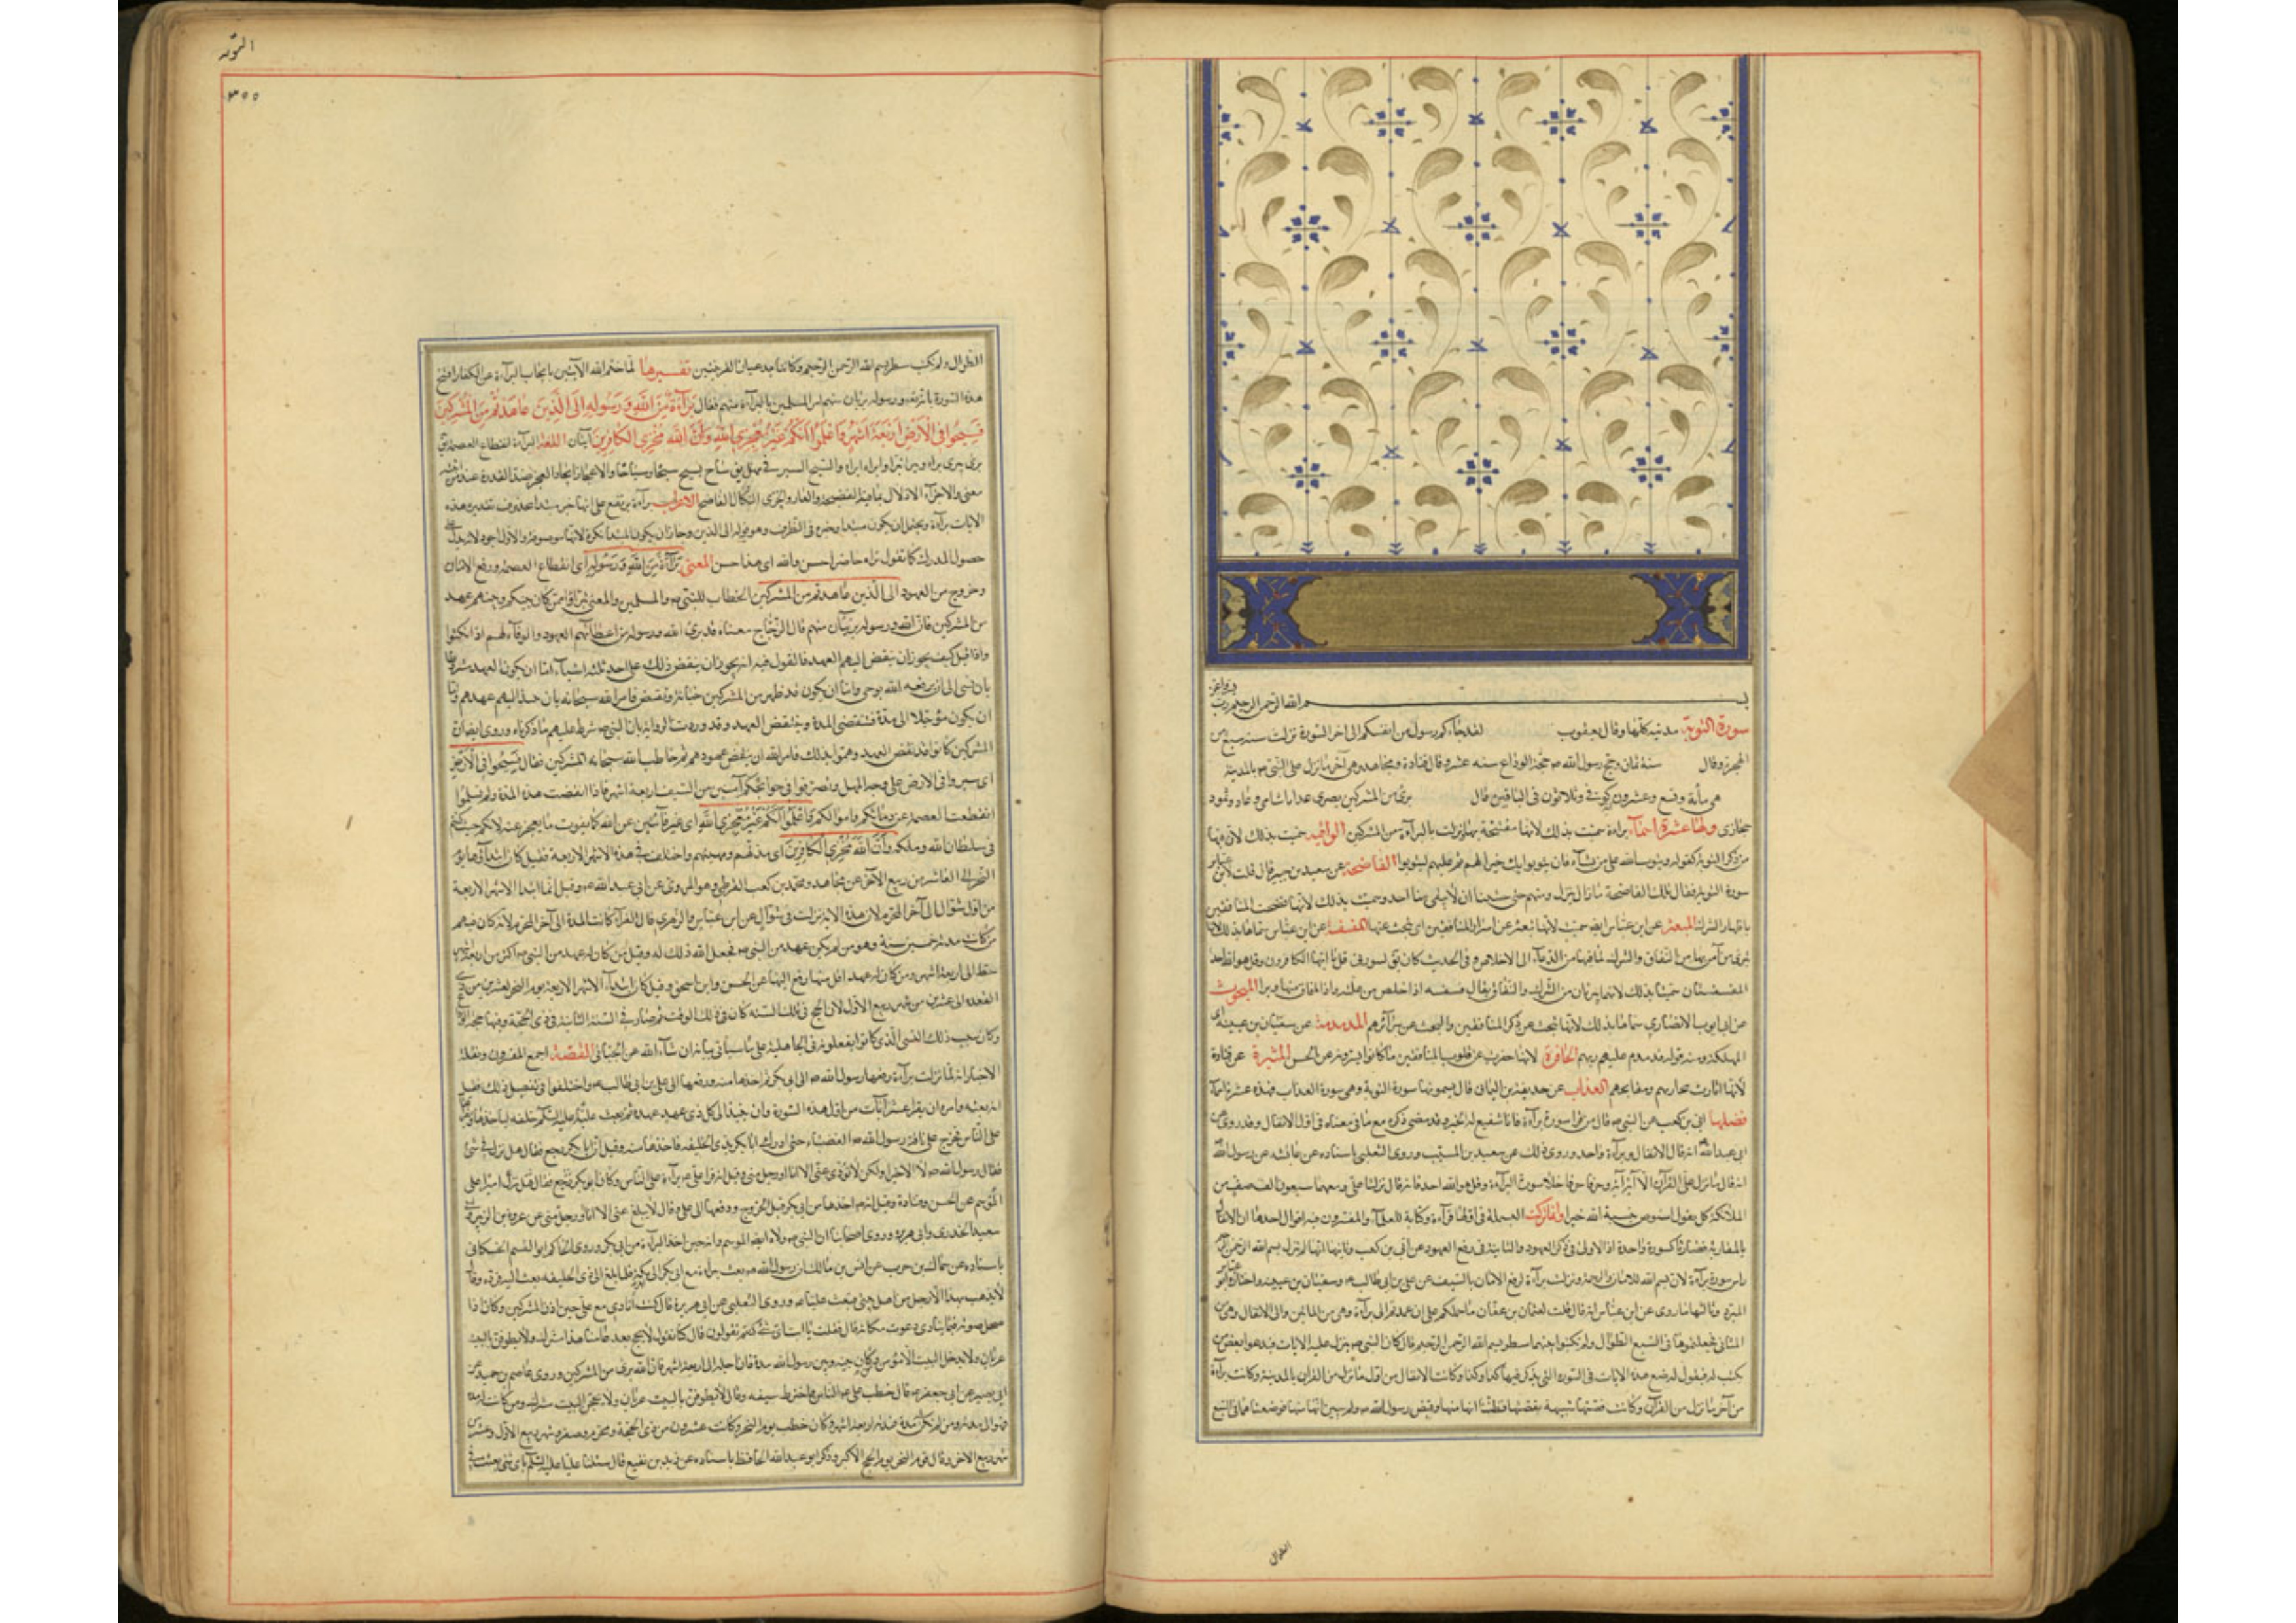 بسم الله الرحمن الرحيم رب
سورة التوبة مدنية كلها وقال يعقوب لقد جاءكم رسول من انفسكم الى اخر السورة نزلت سنة تسع من
الهجرة وقال سنة ثمان وحج رسول الله ص حجة الوداع سنه عشر وقال قتادة ومجاهد وهى آخر ما نزل على النبى ص بالمدينة
هى مأية وتسع وعشرون كوفى وثلاثون فى الباقين قال برئ من المشركين بصرى عذابا شامى وعاد وثمود
حجازى ولها عشرة اسمآء براءة سميت بذلك لانها مفتتحة بها ونزلت بالبرآءة من المشركين التوبة سميت بذلك لان فيها
من ذكر التوبة كقوله ويتوب الله على من يشآء فان يتوبوا يك خيرا لهم ثم تاب عليهم ليتوبوا الفاضحة عن سعيد بن جبير قال قلت لابن عباس
سورة التوبة فقال تلك الفاضحة ما زال ينزل ومنهم حتى خشينا ان لا يبقى منا احد وسميت بذلك لانها فضحت المنافقين
المبعثرة عن ابن عباس ايضا سميت لانها تبعثر عن اسرار المنافقين اى تبحث عنها المقشقشة عن ابن عباس سماها بذلك لانها
تبرئ من آمن بها من النفاق والشرك لما فيها من الدعآء الى الاخلاص وفى الحديث كان يقال لسورتى قل يا ايها الكافرون وقل هو الله احد
المقشقشتان سميتا بذلك لانهما تبريان من الشرك والنفاق يقال قشقشه اذا برا المبحوث
عن ابى ايوب الانصارى سماها بذلك لانها تبحث عن ذكر المنافقين والبحث عن سرآئرهم المدمدمة عن سفيان بن عيينة اى
المهلكة ومنه قوله فدمدم عليهم ربهم الحافرة لانها حفرت عن قلوب المنافقين ما كانوا يسترونه عن الحسن المثيرة عن قتادة
لانها اثارت مخازيهم ومقابحهم العذاب عن حذيفة بن اليمانى قال يسمونها سورة التوبة وهى سورة العذاب فهذه عشرة اسمآء
فضلها ابى بن كعب عن النبى ص قال من قرا سورة برآءة فانا شفيع له الخبر وقد مضى ذكره مع ما فى معناه فى اول الانفال وقد روى عن
ابى عبد الله انه قال الانفال وبرآءة واحد وروى ذلك عن سعيد بن المسيب وروى الثعلبى باسناده عن عائشه عن رسول الله
انه قال ما نزل على القرآن الا آية آية وحرفا حرفا خلا سورة البرآءة وقل هو الله احد فانهما نزلتا على ومعهما سبعون الف صف من
الملئكة كل يقول استوص بنسبة الله خيرا ولما تركت البسملة فى اولها قرآءة وكتابة للعلمآء والمفسرون فيه اقوال احدها ان الانفال
بالمقارنة فصارتا كسورة واحدة اذ الاولى فى ذكر العهود والثانية فى رفع العهود عن ابى بن كعب وثانيها انها لم تنزل بسم الله الرحمن الرحيم
راس سورة برآءة لان بسم الله للامان والرحمة ونزلت برآءة لرفع الامان بالسيف عن على بن ابى طالب ع وسفيان بن عيينه واختاره ابو العباس
المبرد وثالثها ما روى عن ابن عباس انه قال قلت لعثمان بن عفان ما حملكم على ان عمدتم الى برآءة وهى من المائين والى الانفال وهى من
المثانى فجعلتموها فى السبع الطوال ولم تكتبوا بينهما سطر بسم الله الرحمن الرحيم فقال كان النبى ص ينزل عليه الايات فيدعو بعض من
يكتب له فيقول له ضع هذه الايات فى السورة التى يذكر فيها كذا وكذا وكانت الانفال من اول ما نزل من القرآن بالمدينة وكانت برآءة
من آخر ما نزل من القرآن وكانت قصتها شبيهة بقصتها فظننا انها منها وقبض رسول الله ص ولم يبين انها منها فوضعناهما فى السبع
الطوال
التوبة
٣٥٥
الطوال ولم نكتب سطر بسم الله الرحمن الرحيم وكانتا تدعيان القرينتين تفسيرها لما ختم الله الآيتين بايجاب البرآءة عن الكفار افتتح
هذه السورة بانه تعالى ورسوله بريان منهم امر المسلمين بالبرآءة منهم فقال بَرَآءَةٌ مِنَ اللهِ وَرَسُولِهِ اِلَى الَّذِينَ عَاهَدْتُمْ مِنَ الْمُشْرِكِينَ
فَسِيحُوا فِى الْاَرْضِ اَرْبَعَةَ اَشْهُرٍ وَاعْلَمُوا اَنَّكُمْ غَيْرُ مُعْجِزِى اللهِ وَاَنَّ اللهَ مُخْزِى الْكَافِرِينَ آيتان اللغة البرآءة انقطاع العصمة يقال
برئ يبرى براءة وتبرا تبرا وابراه ابراء والسيح السير فى مهل يقال ساح يسيح سيحا وسياحا والاعجاز ايجاد العجز ضد القدرة عند من اثبته
معنى والاخزاء الاذلال بما فيه الفضيحة والعار والخزى النكال الفاضح الاعراب برآءة يرتفع على انها خبر مبتدا محذوف تقديره هذه
الايات برآءة ويحتمل ان يكون مبتدا وخبره فى الظرف وهو قوله الى الذين وجاز ان يكون المبتدا نكرة لانها موصوفة والاول اجود لانه يدل على
حصول المدرك كما تقول لمن تراه حاضرا حسن والله اى هذا حسن المعنى بَرَآءَةٌ مِنَ اللهِ وَرَسُولِهِ اى انقطاع العصمة ورفع الامان
وخروج من العهود الى الذين عاهدتم من المشركين الخطاب للنبى ص والمسلمين والمعنى تبراوا ممن كان بينكم وبينهم عهد
من المشركين فان الله ورسوله بريئان منهم قال الزجاج معناه قد برئ الله ورسوله من اعطآئهم العهود والوفآء لهم اذا نكثوا
واذا قيل كيف يجوز ان ينقض اليهم العهد فالقول فيه انه يجوز ان ينقض ذلك على احد ثلثة اشيآء اما ان يكون العهد مشروطا
بان يبقى الى ان يرفعه الله بوحى واما ان يكون قد ظهر من المشركين خيانة ونقض فامر الله سبحانه بان ينبذ اليهم عهدهم واما
ان يكون مؤجلا الى مدة فتنقضى المدة وينتقض العهد وقد وردت الرواية بان النبى ص شرط عليهم ما ذكرناه وروى ايضا ان
المشركين كانوا قد نقضوا العهد وهموا بذلك فامر الله ان ينقض عهودهم ثم خاطب الله سبحانه المشركين فقال فَسِيحُوا فِى الْاَرْضِ
اى سيروا فى الارض على وجه المهل وتصرفوا فى حوائجكم آمنين من السيف اربعة اشهر فاذا انقضت هذه المدة ولم تسلموا
انقطعت العصمة عن دمآئكم واموالكم وَاعْلَمُوا اَنَّكُمْ غَيْرُ مُعْجِزِى اللهِ اى غير فآئتين عن الله كما يفوت ما يعجز عنه لانكم حيث كنتم
فى سلطان الله وملكه وَاَنَّ اللهَ مُخْزِى الْكَافِرِينَ اى مذلهم ومهينهم واختلف فى هذه الاشهر الاربعة فقيل كان ابتدآؤها يوم
النحر الى العاشر من ربيع الآخر عن مجاهد ومحمد بن كعب القرظى وهو المروى عن ابى عبد الله ع وقيل انما ابتدا الاشهر الاربعة
من اول شوال الى آخر المحرم لان هذه الاية نزلت فى شوال عن ابن عباس والزهرى قال الفرآء كانت المدة الى آخر المحرم لانه كان فيهم
من كانت مدته خمسين ليلة وهو من لم يكن له عهد من النبى ص فجعل الله ذلك له وقيل من كان له عهد من النبى ص اكثر من اربعة اشهر
حط الى اربعة اشهر ومن كان له عهد اقل منها رفع اليها عن الحسن وابن اسحق وقيل كان ابتدآء الاشهر الاربعة يوم النحر لعشرين من ذى
القعده الى عشرين من شهر ربيع الاول لان الحج فى تلك السنه كان فى ذلك الوقت ثم صار فى السنة الثانية فى ذى الحجة وفيها حجة الوداع
وكان سبب ذلك النسى الذى كانوا يفعلونه فى الجاهلية على ما سياتى بيانه ان شآء الله عن الجبائى القصة اجمع المفسرون ونقلة
الاخبار انه لما نزلت برآءة دفعها رسول الله ص الى ابى بكر ثم اخذها منه ودفعها الى على بن ابى طالب ع واختلفوا فى تفصيل ذلك فقيل
انه بعثه وامره ان يقرا عشر آيات من اول هذه السورة وان ينبذ الى كل ذى عهد عهده ثم بعث عليا عليه السلم خلفه لياخذها ويقراها
على الناس فخرج على ناقة رسول الله ص العضباء حتى ادرك ابا بكر بذى الحليفه فاخذها منه وقيل ان ابا بكر رجع فقال هل نزل فى شئ
فقال رسول الله ص لا الا خيرا ولكن لا يؤدى عنى الا انا او رجل منى وقيل انه قرا على ع برآءة على الناس وكان ابو بكر اميرا على
الموسم عن الحسن وقتادة وقيل انه ص اخذها من ابى بكر قبل الخروج ودفعها الى على وقال لا يبلغ عنى الا انا او رجل منى عن عروة بن الزبير وابى
سعيد الخدرى وابى هريره وروى اصحابنا ان النبى ص ولاه ايضا الموسم وانه حين اخذ البرآءة من ابى بكر وروى الحاكم ابو القسم الحسكانى
باسناده عن سماك بن حرب عن انس بن مالك ان رسول الله ص بعث ببراءة مع ابى بكر الى مكة فلما بلغ الى ذى الحليفه بعث اليه فرده وقال
لا يذهب بهذا الا رجل من اهل بيتى فبعث عليا ع وروى الثعلبى عن ابى هريرة قال كنت انادى مع على حين اذن المشركين وكان اذا
صحل صوته فيما ينادى دعوت مكانه قال فقلت يا ابت اى شئ كنتم تقولون قال كنا نقول لا يحج بعد عامنا هذا مشرك ولا يطوفن بالبيت
عريان ولا يدخل البيت الا مؤمن ومن كان بينه وبين رسول الله مدة فان اجله الى اربعة اشهر فان الله برى من المشركين وروى عاصم بن حميد عن
ابى بصير عن ابى جعفر ع قال خطب على ع الناس واخترط سيفه وقال لا يطوفن بالبيت عريان ولا يحجن البيت مشرك ومن كانت له مدة
فهو الى مدته ومن لم تكن له مدة فمدته اربعة اشهر وكان خطب يوم النحر وكانت عشرون من ذى الحجة ومحرم وصفر وشهر ربيع الاول وعشر من
شهر ربيع الاخر وقال يوم النحر يوم الحج الاكبر وذكر ابو عبد الله الحافظ باسناده عن زيد بن نفيع قال سئلنا عليا عليه السلم باى شئ بعثت فى